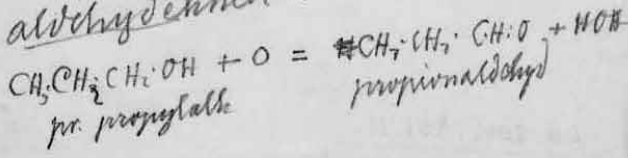 CH₃·CH₂·CH₂·OH + O = CH₃·CH₂·CH:O + HOH
pr. propylalk propionaldehyd